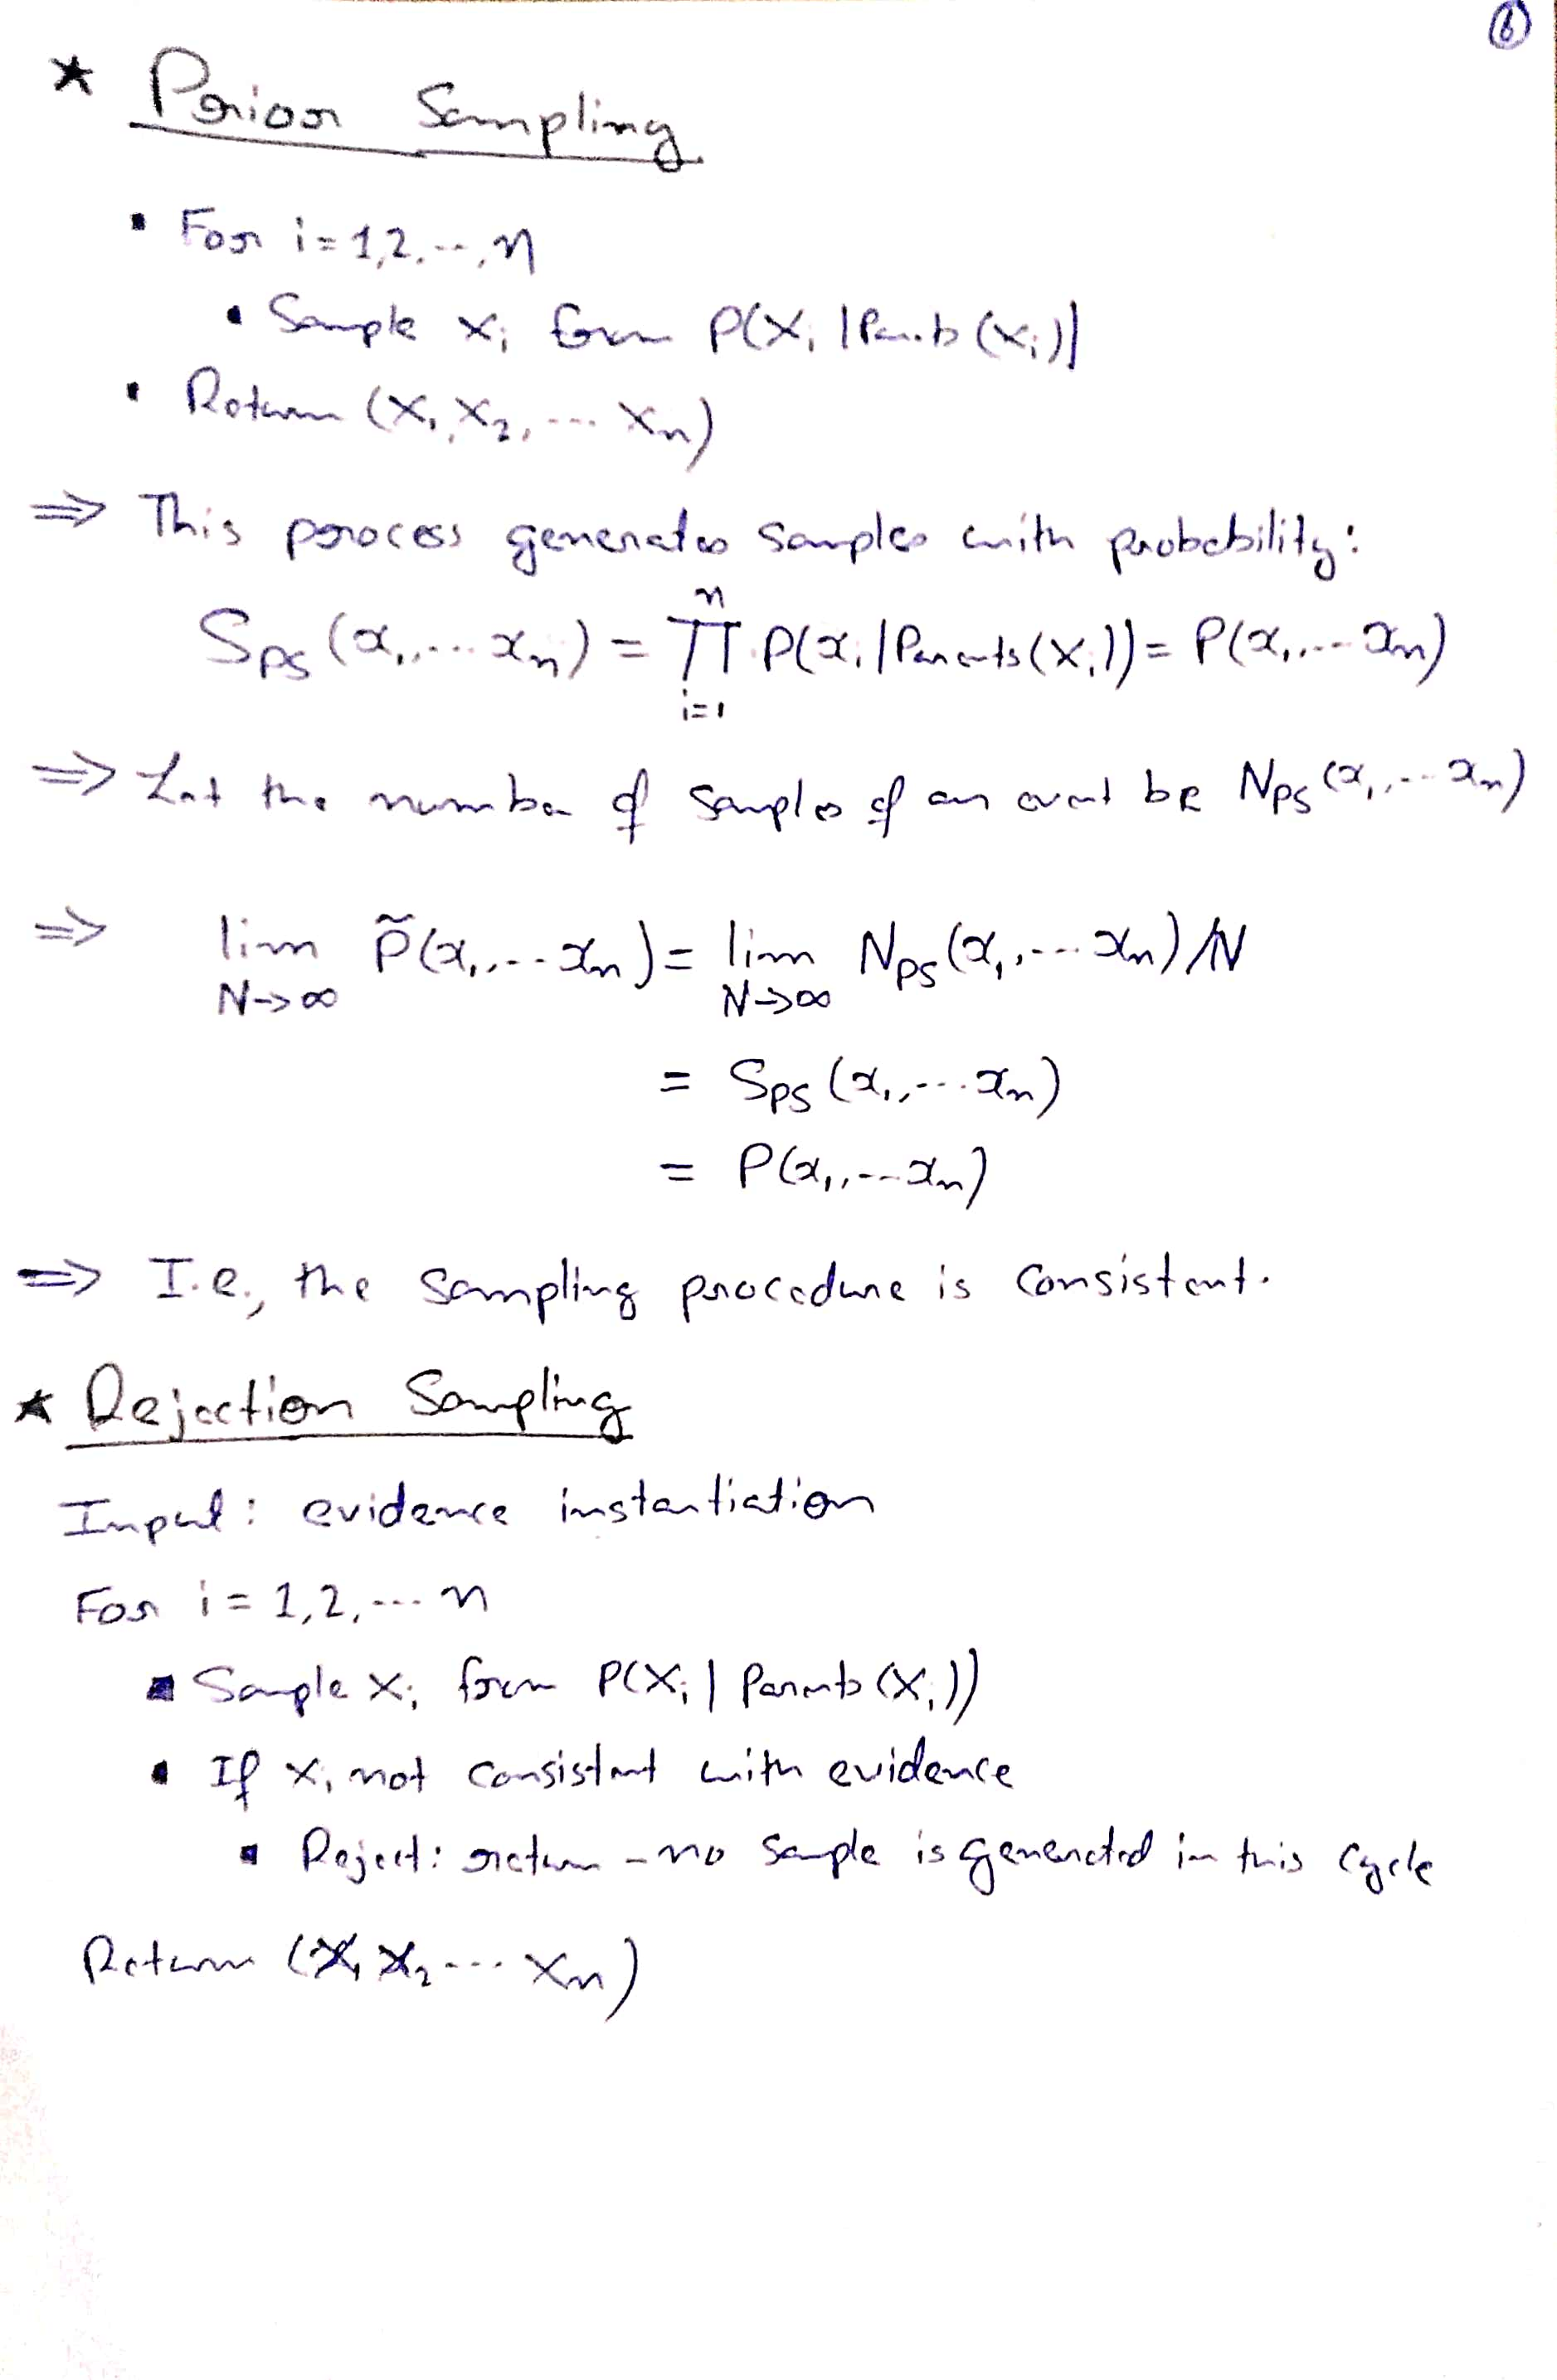 ⑥
* Prior Sampling
▪ For i=1,2,...,n
▪ Sample Xᵢ from P(Xᵢ | Parents(Xᵢ))
▪ Return (X₁, X₂, ... Xₙ)
⇒ This process generates samples with probability:
S_PS(x₁,... xₙ) = ∏ᵢ₌₁ⁿ P(xᵢ | Parents(Xᵢ)) = P(x₁,... xₙ)
⇒ Let the number of samples of an event be N_PS(x₁,... xₙ)
⇒ lim_{N→∞} P̃(x₁,... xₙ) = lim_{N→∞} N_PS(x₁,... xₙ)/N
= S_PS(x₁,... xₙ)
= P(x₁,... xₙ)
⇒ I.e., the sampling procedure is consistent.
* Rejection Sampling
Input: evidence instantiation
For i = 1,2,... n
▪ Sample Xᵢ from P(Xᵢ | Parents(Xᵢ))
▪ If xᵢ not consistent with evidence
▪ Reject: return - no sample is generated in this cycle
Return (X₁ X₂ ... Xₙ)